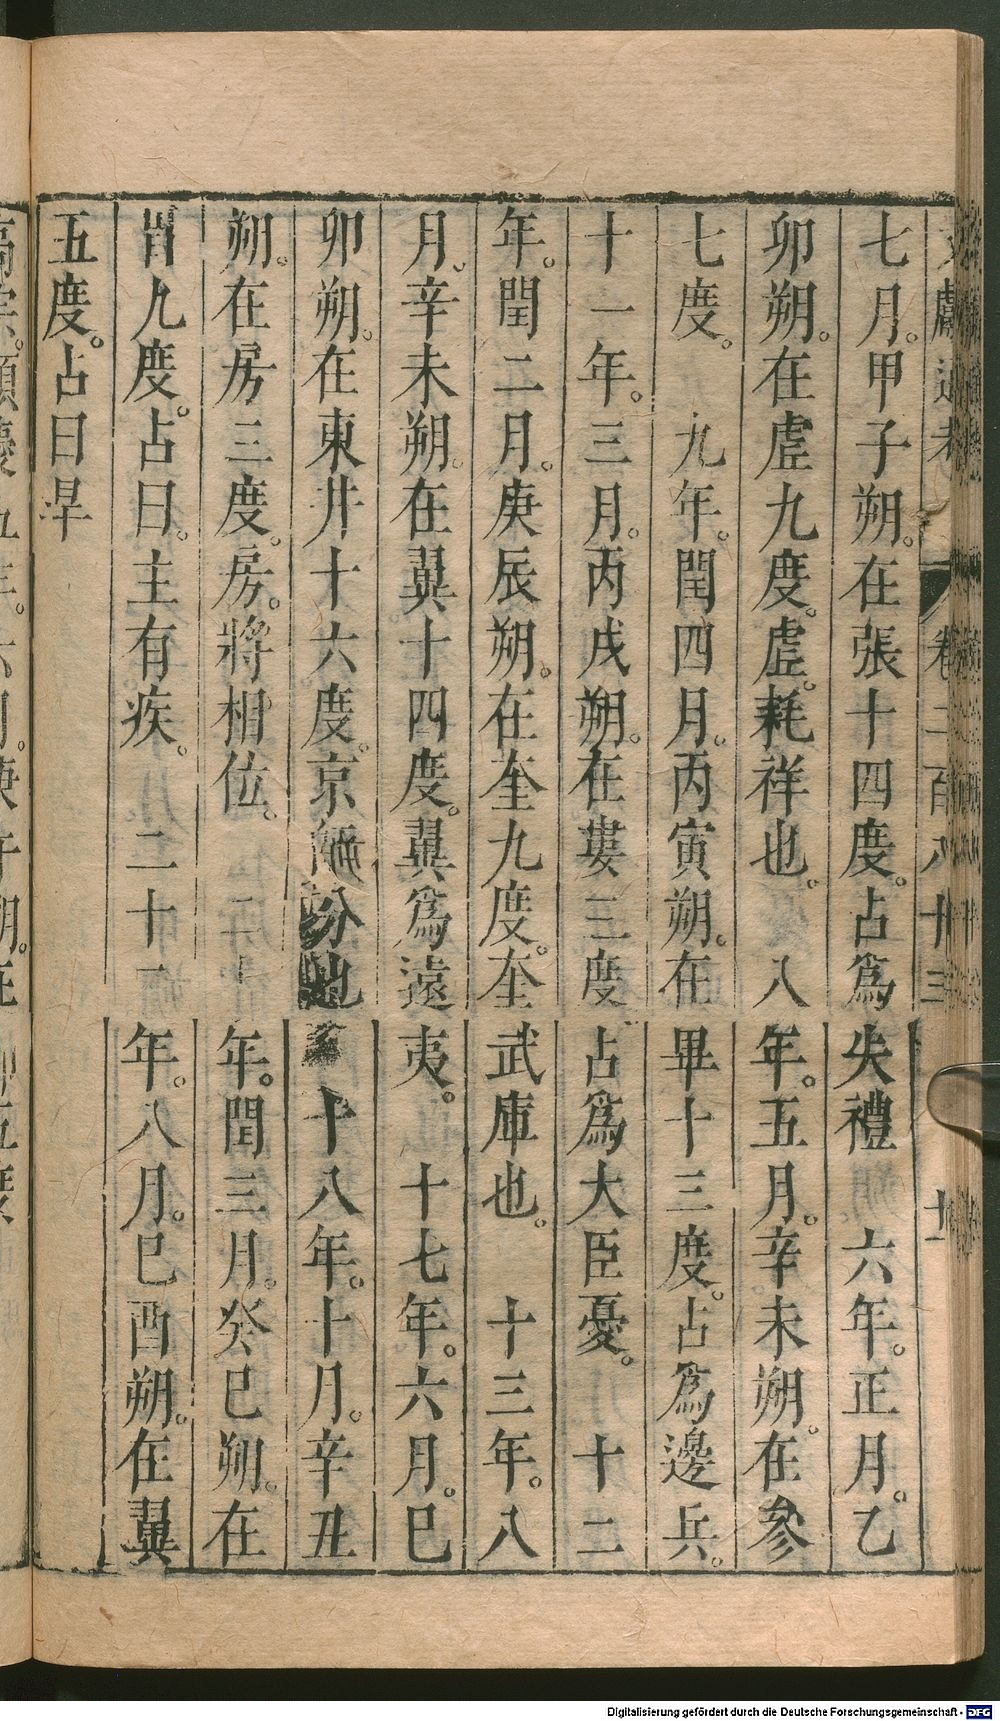 文獻通考 卷二百八十三 十一
七月。甲子朔。在張十四度。占爲失禮 六年。正月。乙
卯朔。在虛九度。虛。耗祥也。 八年。五月。辛未朔。在參
七度。 九年。閏四月。丙寅朔。在畢十三度。占爲邊兵。
十一年。三月。丙戌朔。在婁三度占爲大臣憂。 十二
年。閏二月。庚辰朔。在奎九度。奎武庫也。 十三年。八
月。辛未朔。在翼十四度。翼爲遠夷。 十七年。六月。巳
卯朔。在東井十六度。京師分地 十八年。十月。辛丑
朔。在房三度。房。將相位。 二十年。閏三月。癸巳朔。在
胃九度。占曰。主有疾。 二十二年。八月。巳酉朔。在翼
五度。占曰旱
Digitalisierung gefördert durch die Deutsche Forschungsgemeinschaft - DFG